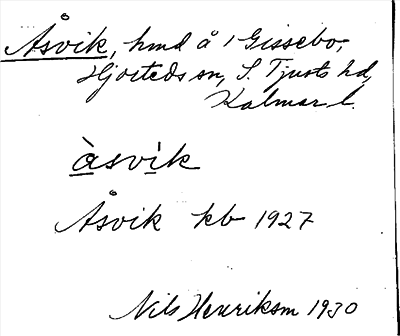 Åsvik, hmd å 1 Gissebo,
Hjorteds sn, S. Tjusts hd,
Kalmar l.
àsvik
Åsvik kb 1927
Nils Henriksm 1930